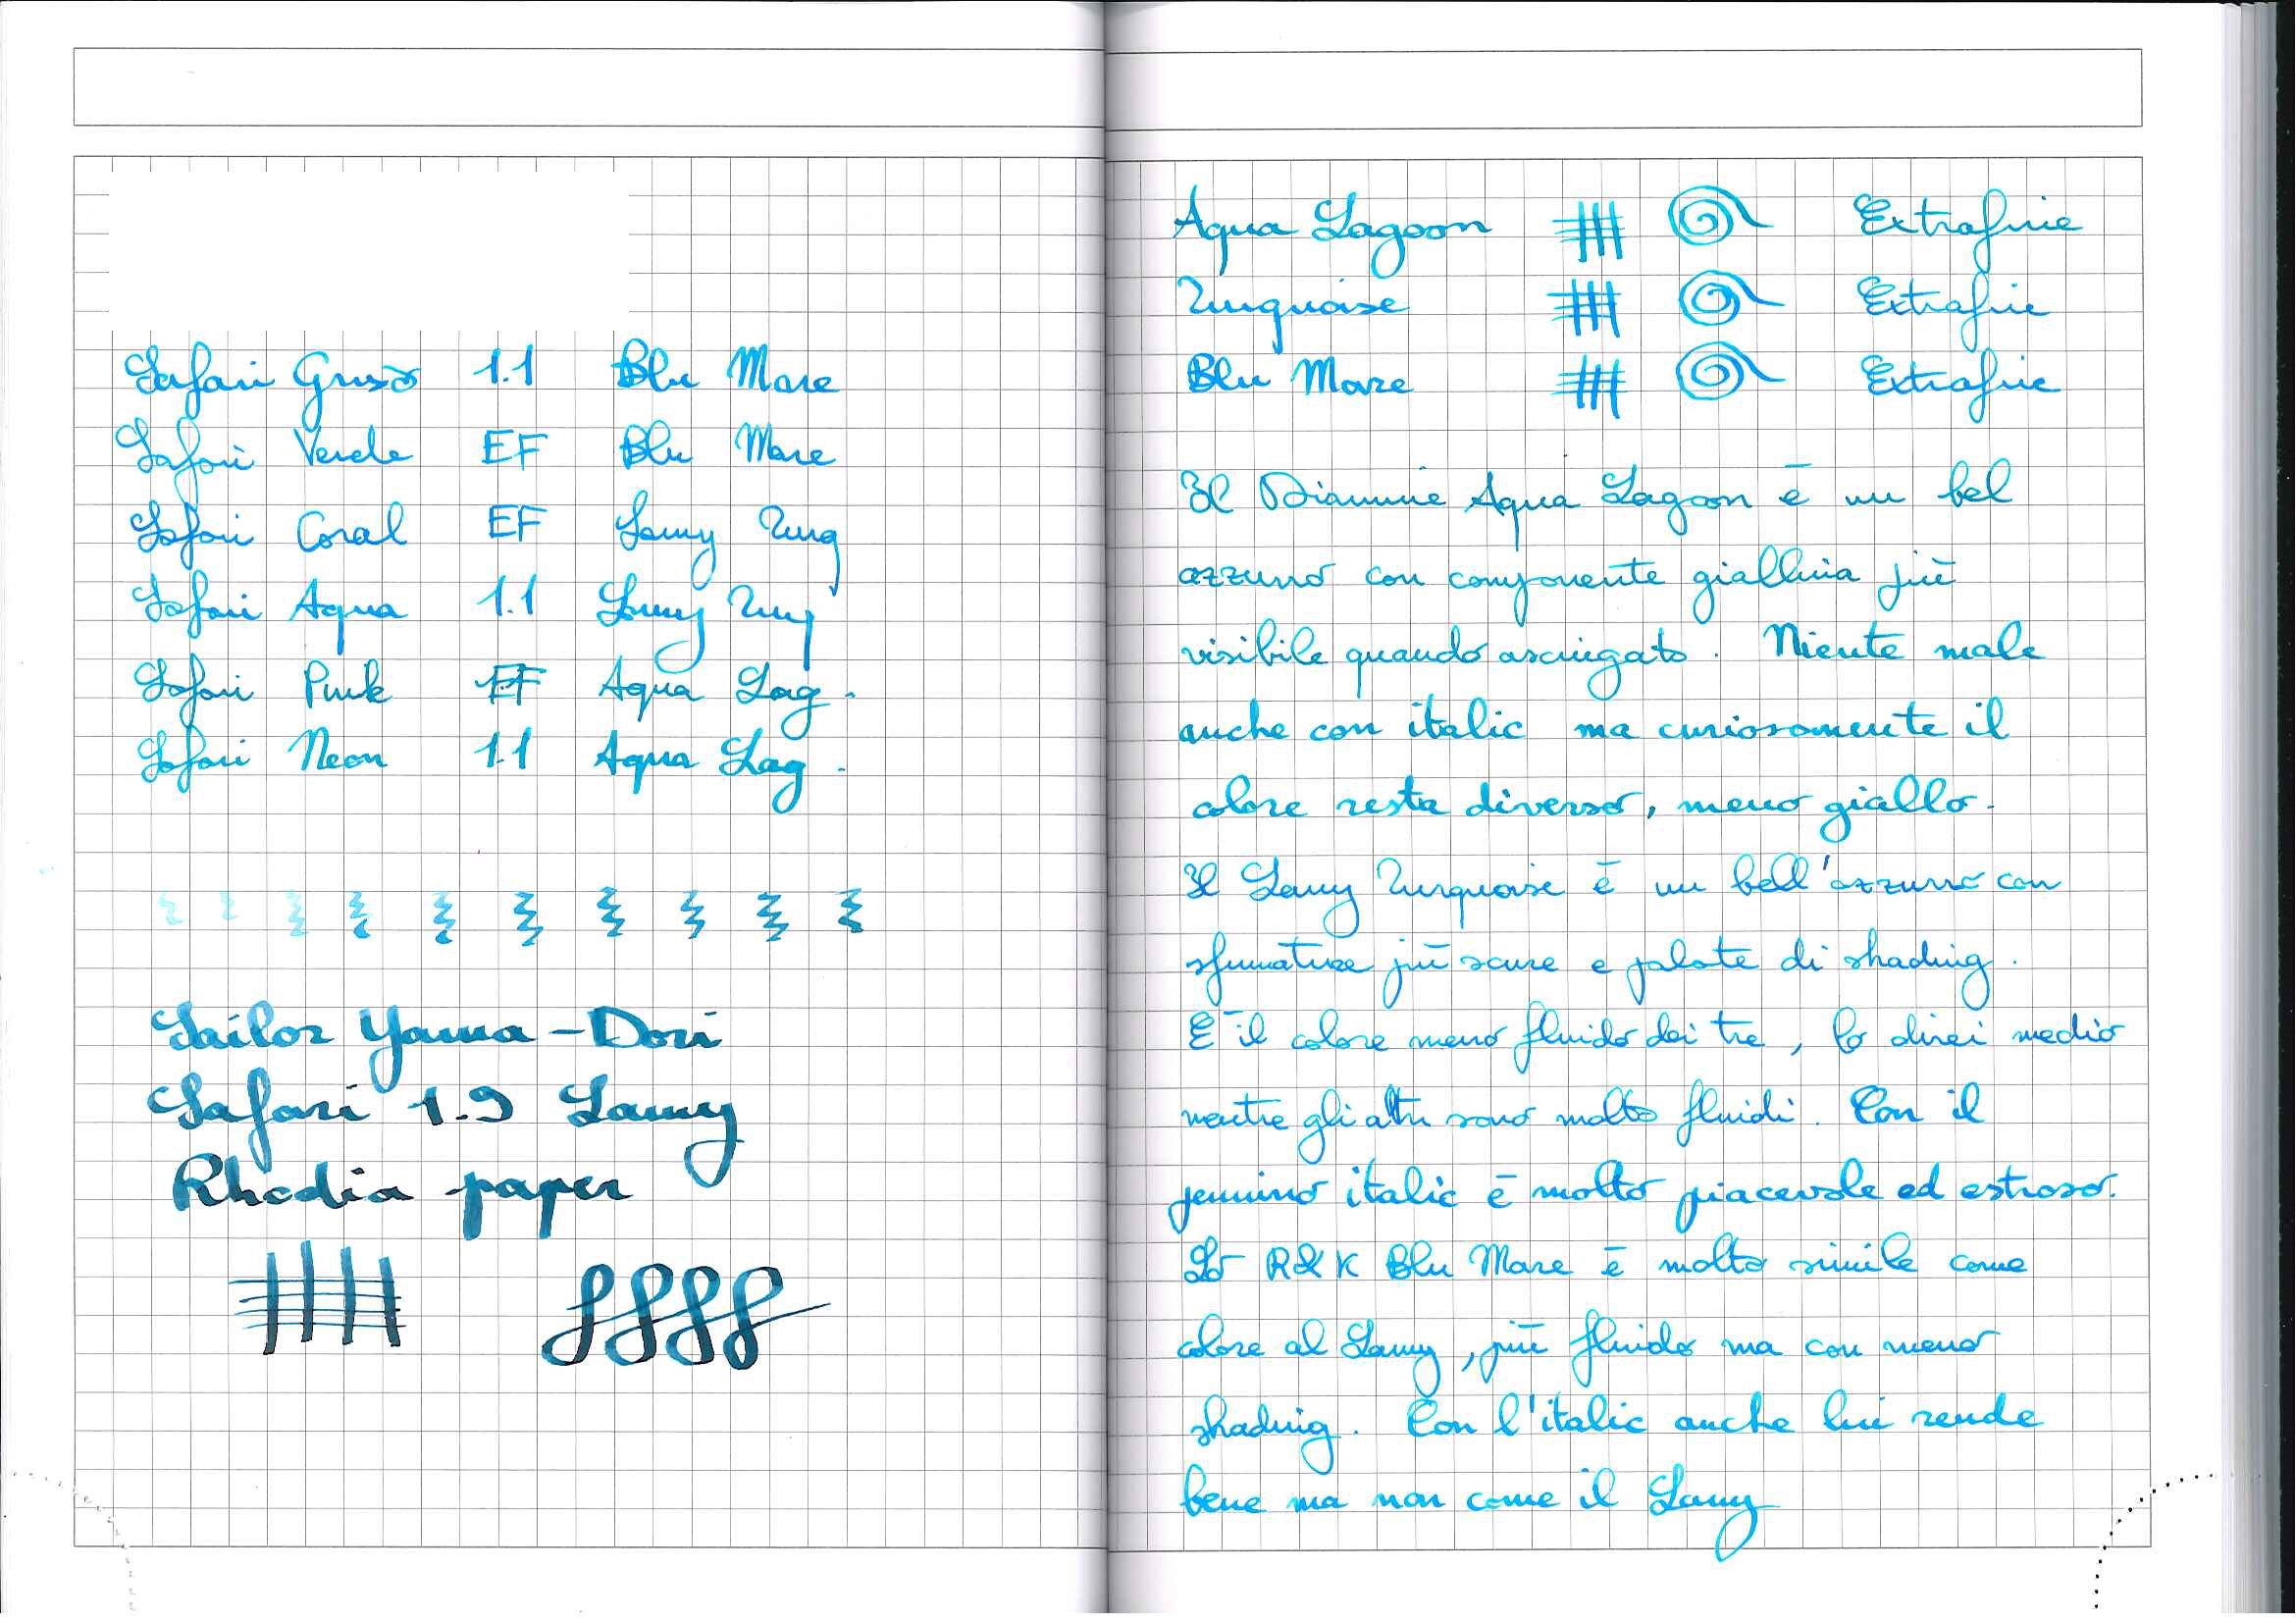 Safari Grigio 1.1 Blu Mare
Safari Verde EF Blu Mare
Safari Coral EF Lamy Turq
Safari Aqua 1.1 Lamy Turq
Safari Pink EF Aqua Lag.
Safari Neon 1.1 Aqua Lag.
Sailor Yama-Dori
Safari 1.9 Lamy
Rhodia paper
Aqua Lagoon Extrafine
Turquoise Extrafine
Blu Mare Extrafine
Il Diamine Aqua Lagoon è un bel
azzurro con componente giallina più
visibile quando asciugato. Niente male
anche con italic ma curiosamente il
colore resta diverso, meno giallo.
Il Lamy Turquoise è un bell'azzurro con
sfumature più scure e palate di shading.
E' il colore meno fluido dei tre, lo direi medio
mentre gli altri sono molto fluidi. Con il
pennino italic è molto piacevole ed estroso.
Lo R&K Blu Mare è molto simile come
colore al Lamy, più fluido ma con meno
shading. Con l'italic anche lui rende
bene ma non come il Lamy